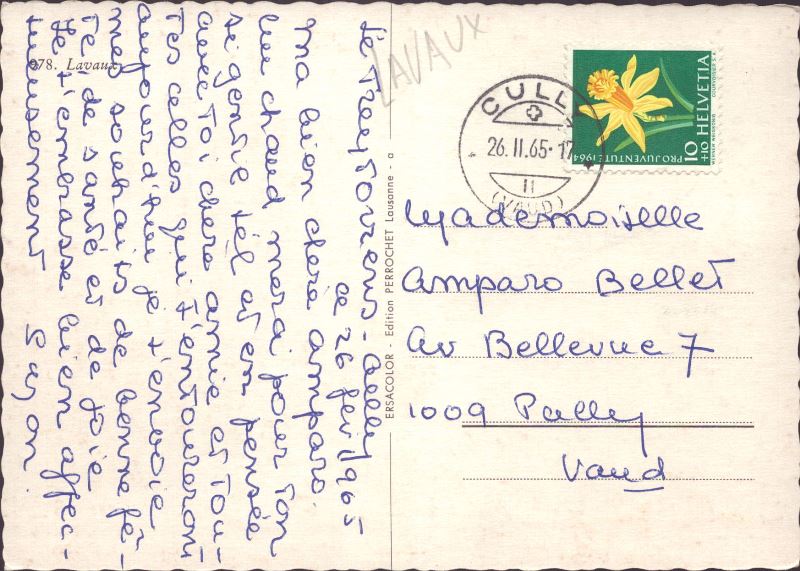 Le Treytorrens-Cully
ce 26 fév/1965
Ma bien chère Amparo.
Un chaud merci pour ton
si gentil tél et en pensée
avec toi chère amie et tou-
tes celles qui t'entoureront
aujourd'hui je t'envoie
mes souhaits de bonne fê-
te de santé et de joie
Je t'embrasse bien affec-
tueusement
978. Lavaux
LAVAUX
ERSACOLOR - Edition PERROCHET Lausanne - a
CULLY
26.II.65-17
II
(VAUD)
HELVETIA
10
+10
PRO JUVENTUTE 1964
Mademoiselle
Amparo Bellet
Av Bellevue 7
1009 Pully
Vaud